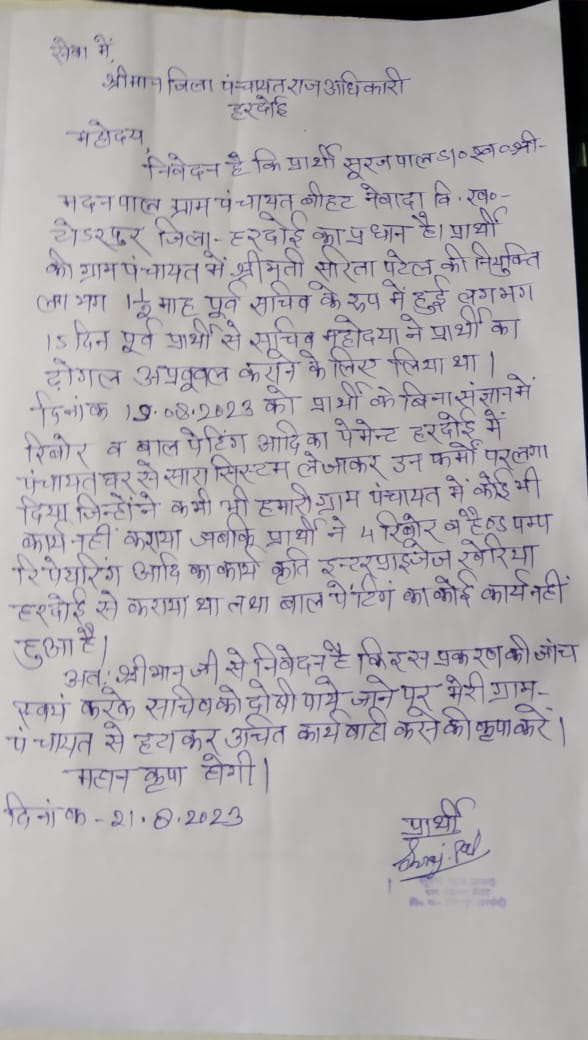 सेवा में,
श्रीमान जिला पंचायत राज अधिकारी
हरदोई
महोदय,
निवेदन है कि प्रार्थी सूरजपाल S/० स्व० श्री-
मदनपाल ग्राम पंचायत बीहट नेवादा वि. ख०-
टोडरपुर जिला- हरदोई का प्रधान है। प्रार्थी
की ग्राम पंचायत में श्रीमती सरिता पटेल की नियुक्ति
लगभग 1½ माह पूर्व सचिव के रूप में हुई लगभग
15 दिन पूर्व प्रार्थी से सचिव महोदया ने प्रार्थी का
डोंगल अप्रूवल कराने के लिए लिया था।
दिनांक 19.08.2023 को प्रार्थी के बिना संज्ञान में
रिबोर व बाल पेंटिंग आदि का पेमेन्ट हरदोई में
पंचायत घर से सारा सिस्टम ले जाकर उन फर्मों पर लगा
दिया जिन्होंने कभी भी हमारी ग्राम पंचायत में कोई भी
कार्य नहीं कराया जबकि प्रार्थी ने 4 रिबोर व हैण्ड पम्प
रिपेयरिंग आदि का कार्य कृति इन्टरप्राइजेज खेरिया
हरदोई से कराया था तथा बाल पेंटिंग का कोई कार्य नहीं
हुआ है।
अतः श्रीमान जी से निवेदन है कि इस प्रकरण की जांच
स्वयं करके सचिव को दोषी पाये जाने पर मेरी ग्राम-
पंचायत से हटाकर उचित कार्यवाही करने की कृपा करें।
महान कृपा होगी।
दिनांक - 21.8.2023
प्रार्थी
Suraj Pal